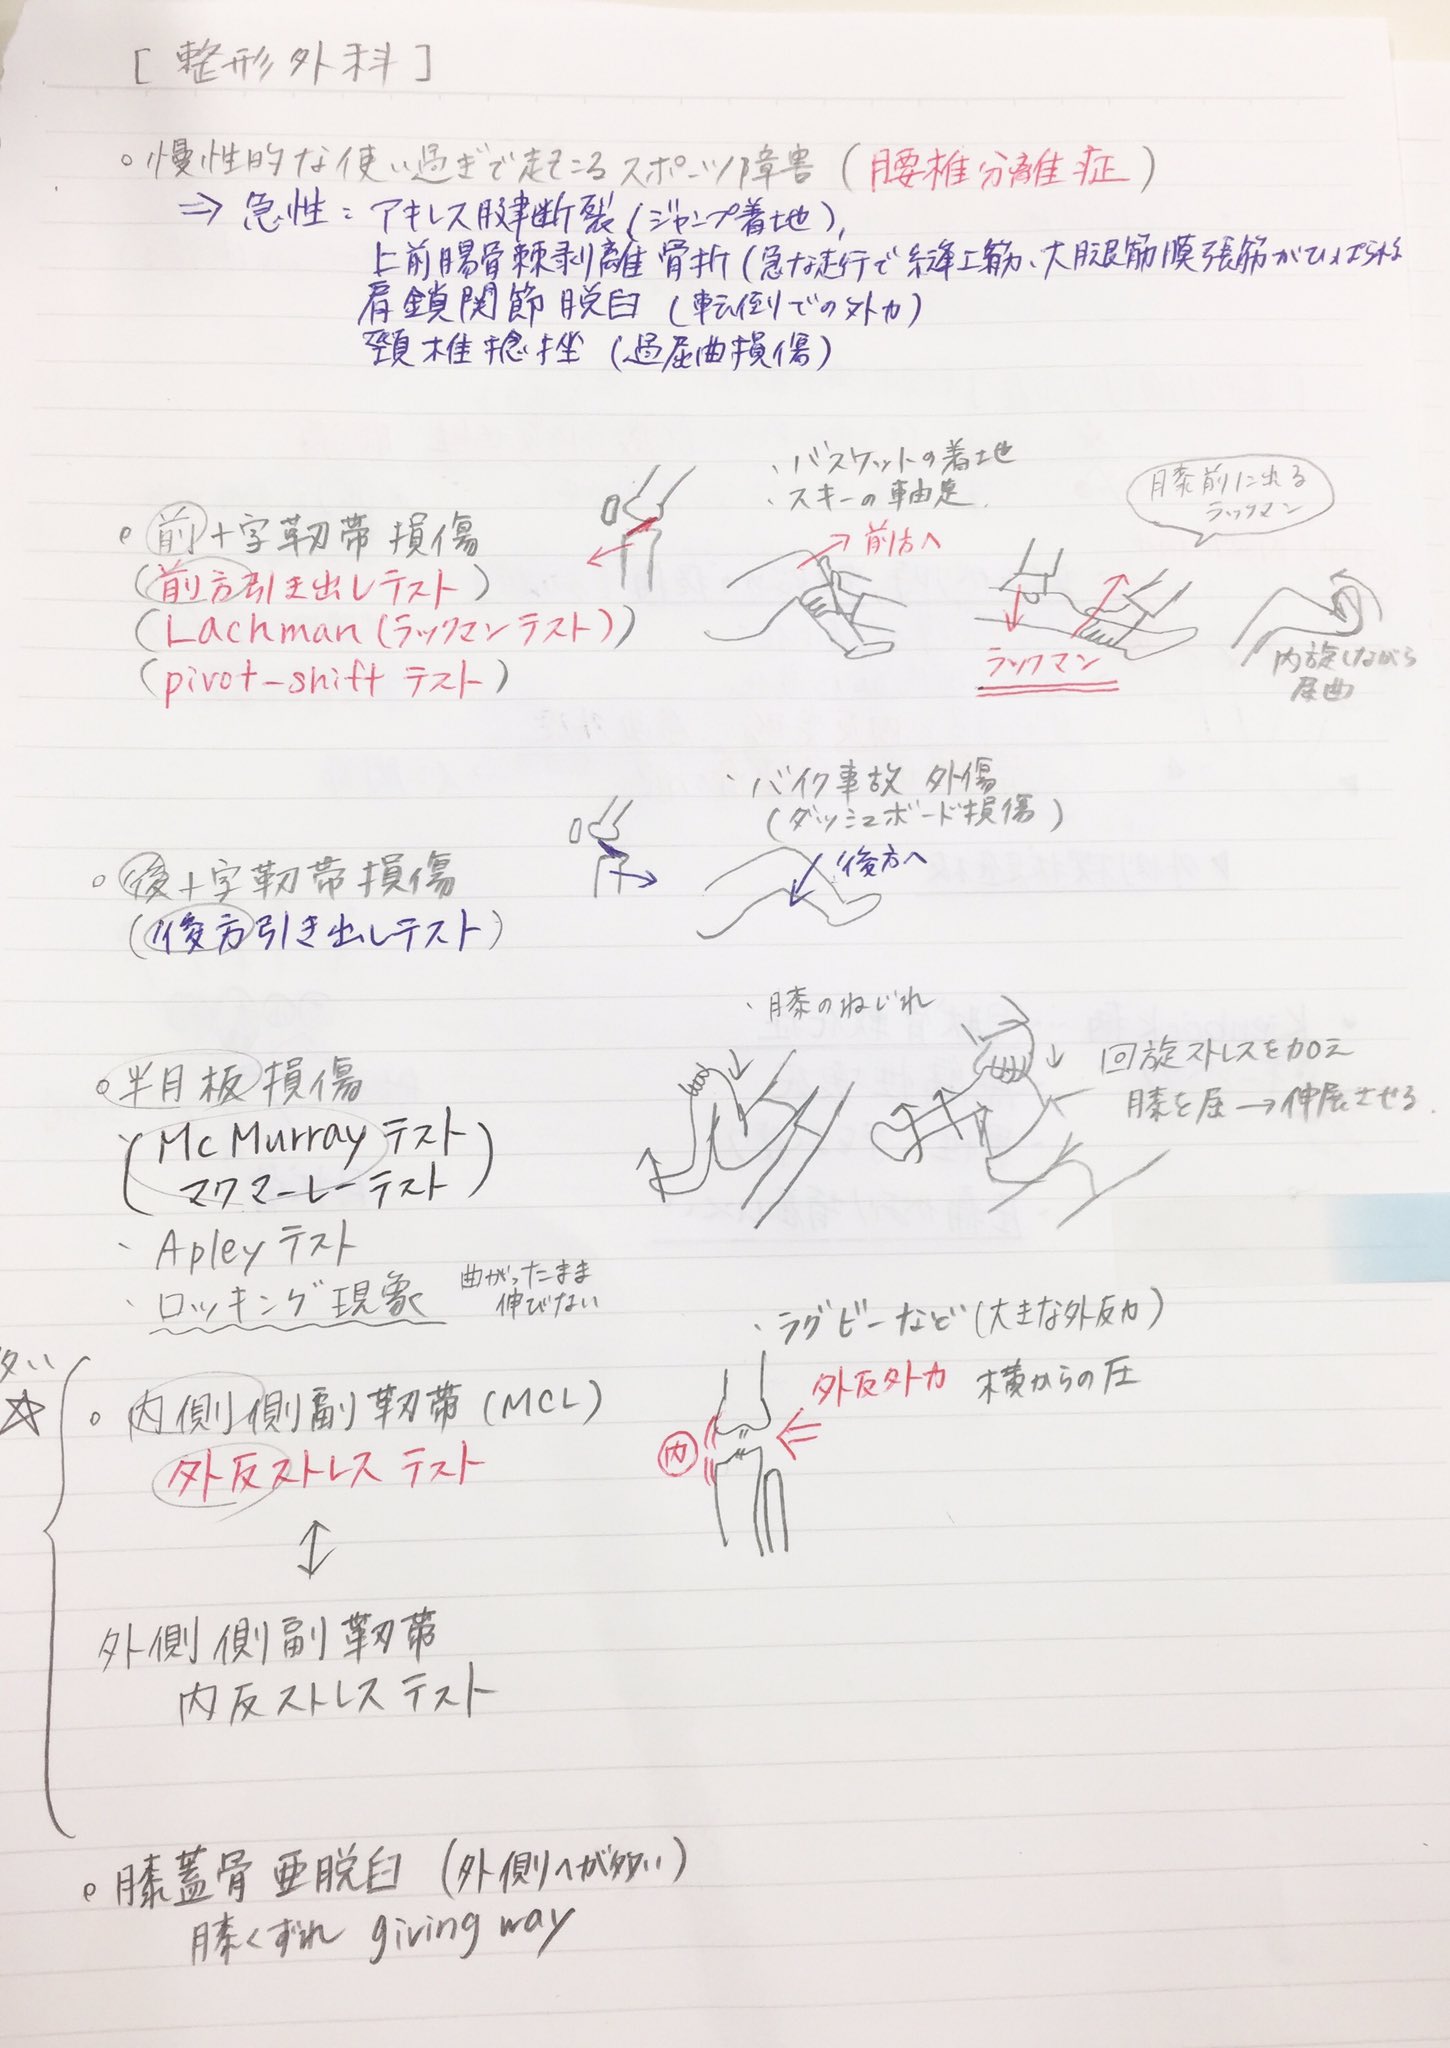 [整形外科]
・慢性的な使い過ぎで起こるスポーツ障害(腰椎分離症)
⇒ 急性:アキレス腱断裂(ジャンプ着地),
上前腸骨棘剥離骨折(急な走行で縫工筋、大腿筋膜張筋がひっぱられる
肩鎖関節脱臼(転倒での外力)
頸椎捻挫(過屈曲損傷)
・バスケットの着地
・スキーの軸足
膝前に出る
ラックマン
・前十字靭帯損傷
(前方引き出しテスト)
(Lachman(ラックマンテスト))
(pivot-shiftテスト)
前方へ
ラックマン
内旋しながら
屈曲
・バイク事故 外傷
(ダッシュボード損傷)
・後十字靭帯損傷
(後方引き出しテスト)
後方へ
・膝のねじれ
回旋ストレスを加え
膝を屈→伸展させる
・半月板損傷
(McMurrayテスト
マクマーレーテスト)
・Apleyテスト
・ロッキング現象
曲がったまま
伸びない
・ラグビーなど(大きな外反力)
外反外力 横からの圧
内
多い
☆
・内側側副靭帯(MCL)
外反ストレステスト
↕
外側側副靭帯
内反ストレステスト
・膝蓋骨亜脱臼(外側へが多い)
膝くずれ giving way